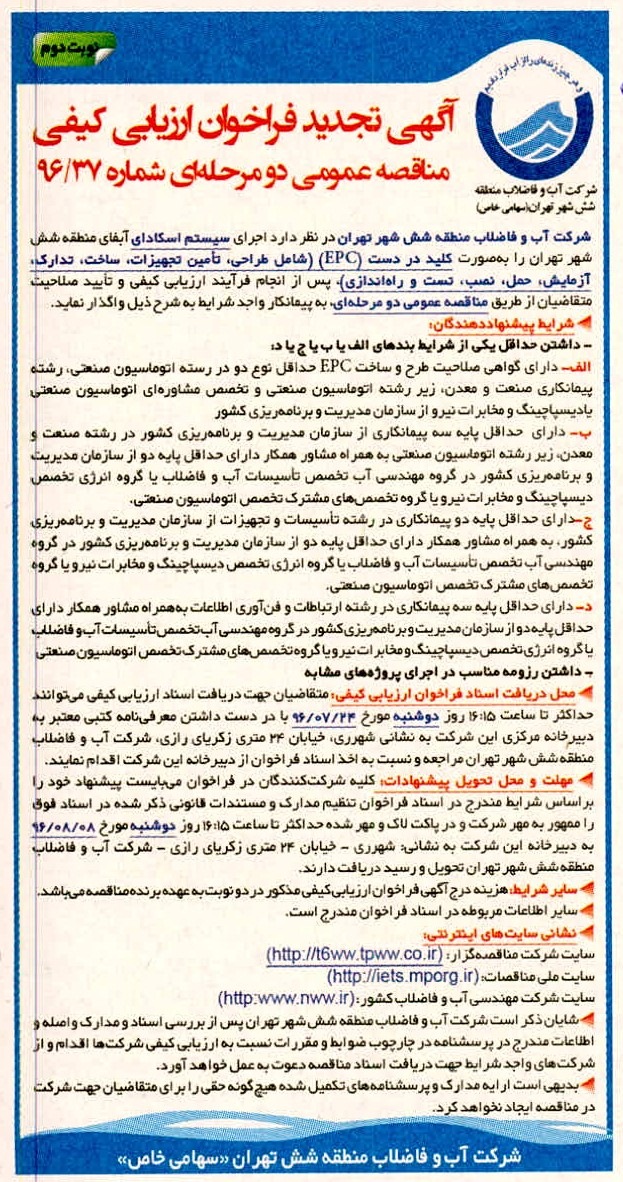 نوبت دوم
و هر چیز زنده‌ای را از آب قرار دادیم
آگهی تجدید فراخوان ارزیابی کیفی
مناقصه عمومی دو مرحله‌ای شماره ۹۶/۳۷
شرکت آب و فاضلاب منطقه
شش شهر تهران (سهامی خاص)
شرکت آب و فاضلاب منطقه شش شهر تهران در نظر دارد اجرای سیستم اسکادای آبفای منطقه شش
شهر تهران را به‌صورت کلید در دست (EPC) (شامل طراحی، تأمین تجهیزات، ساخت، تدارک،
آزمایش، حمل، نصب، تست و راه‌اندازی)، پس از انجام فرآیند ارزیابی کیفی و تأیید صلاحیت
متقاضیان از طریق مناقصه عمومی دو مرحله‌ای، به پیمانکار واجد شرایط به شرح ذیل واگذار نماید.
شرایط پیشنهاددهندگان:
- داشتن حداقل یکی از شرایط بندهای الف یا ب یا ج یا د:
الف- دارای گواهی صلاحیت طرح و ساخت EPC حداقل نوع دو در رسته اتوماسیون صنعتی، رشته
پیمانکاری صنعت و معدن، زیر رشته اتوماسیون صنعتی و تخصص مشاوره‌ای اتوماسیون صنعتی
یا دیسپاچینگ و مخابرات نیرو از سازمان مدیریت و برنامه‌ریزی کشور
ب- دارای حداقل پایه سه پیمانکاری از سازمان مدیریت و برنامه‌ریزی کشور در رشته صنعت و
معدن، زیر رشته اتوماسیون صنعتی به همراه مشاور همکار دارای حداقل پایه دو از سازمان مدیریت
و برنامه‌ریزی کشور در گروه مهندسی آب تخصص تأسیسات آب و فاضلاب یا گروه انرژی تخصص
دیسپاچینگ و مخابرات نیرو یا گروه تخصص‌های مشترک تخصص اتوماسیون صنعتی.
ج- دارای حداقل پایه دو پیمانکاری در رشته تأسیسات و تجهیزات از سازمان مدیریت و برنامه‌ریزی
کشور، به همراه مشاور همکار دارای حداقل پایه دو از سازمان مدیریت و برنامه‌ریزی کشور در گروه
مهندسی آب تخصص تأسیسات آب و فاضلاب یا گروه انرژی تخصص دیسپاچینگ و مخابرات نیرو یا گروه
تخصص‌های مشترک تخصص اتوماسیون صنعتی.
د- دارای حداقل پایه سه پیمانکاری در رشته ارتباطات و فن‌آوری اطلاعات به‌همراه مشاور همکار دارای
حداقل پایه دو از سازمان مدیریت و برنامه‌ریزی کشور در گروه مهندسی آب تخصص تأسیسات آب و فاضلاب
یا گروه انرژی تخصص دیسپاچینگ و مخابرات نیرو یا گروه تخصص‌های مشترک تخصص اتوماسیون صنعتی
- داشتن رزومه مناسب در اجرای پروژه‌های مشابه
محل دریافت اسناد فراخوان ارزیابی کیفی: متقاضیان جهت دریافت اسناد ارزیابی کیفی می‌توانند
حداکثر تا ساعت ۱۶:۱۵ روز دوشنبه مورخ ۹۶/۰۷/۲۴ با در دست داشتن معرفی‌نامه کتبی معتبر به
دبیرخانه مرکزی این شرکت به نشانی شهرری، خیابان ۲۴ متری زکریای رازی، شرکت آب و فاضلاب
منطقه شش شهر تهران مراجعه و نسبت به اخذ اسناد فراخوان از دبیرخانه این شرکت اقدام نمایند.
مهلت و محل تحویل پیشنهادات: کلیه شرکت‌کنندگان در فراخوان می‌بایست پیشنهاد خود را
براساس شرایط مندرج در اسناد فراخوان تنظیم مدارک و مستندات قانونی ذکر شده در اسناد فوق
را ممهور به مهر شرکت و در پاکت لاک و مهر شده حداکثر تا ساعت ۱۶:۱۵ روز دوشنبه مورخ ۹۶/۰۸/۰۸
به دبیرخانه این شرکت به نشانی: شهرری - خیابان ۲۴ متری زکریای رازی - شرکت آب و فاضلاب
منطقه شش شهر تهران تحویل و رسید دریافت دارند.
سایر شرایط: هزینه درج آگهی فراخوان ارزیابی کیفی مذکور در دو نوبت به عهده برنده مناقصه می‌باشد.
سایر اطلاعات مربوطه در اسناد فراخوان مندرج است.
نشانی سایت‌های اینترنتی:
سایت شرکت مناقصه‌گزار: (http://t6ww.tpww.co.ir)
سایت ملی مناقصات: (http://iets.mporg.ir)
سایت شرکت مهندسی آب و فاضلاب کشور: (http:www.nww.ir)
شایان ذکر است شرکت آب و فاضلاب منطقه شش شهر تهران پس از بررسی اسناد و مدارک واصله و
اطلاعات مندرج در پرسشنامه در چارچوب ضوابط و مقررات نسبت به ارزیابی کیفی شرکت‌ها اقدام و از
شرکت‌های واجد شرایط جهت دریافت اسناد مناقصه دعوت به عمل خواهد آورد.
بدیهی است ارایه مدارک و پرسشنامه‌های تکمیل شده هیچ‌گونه حقی را برای متقاضیان جهت شرکت
در مناقصه ایجاد نخواهد کرد.
شرکت آب و فاضلاب منطقه شش تهران «سهامی خاص»